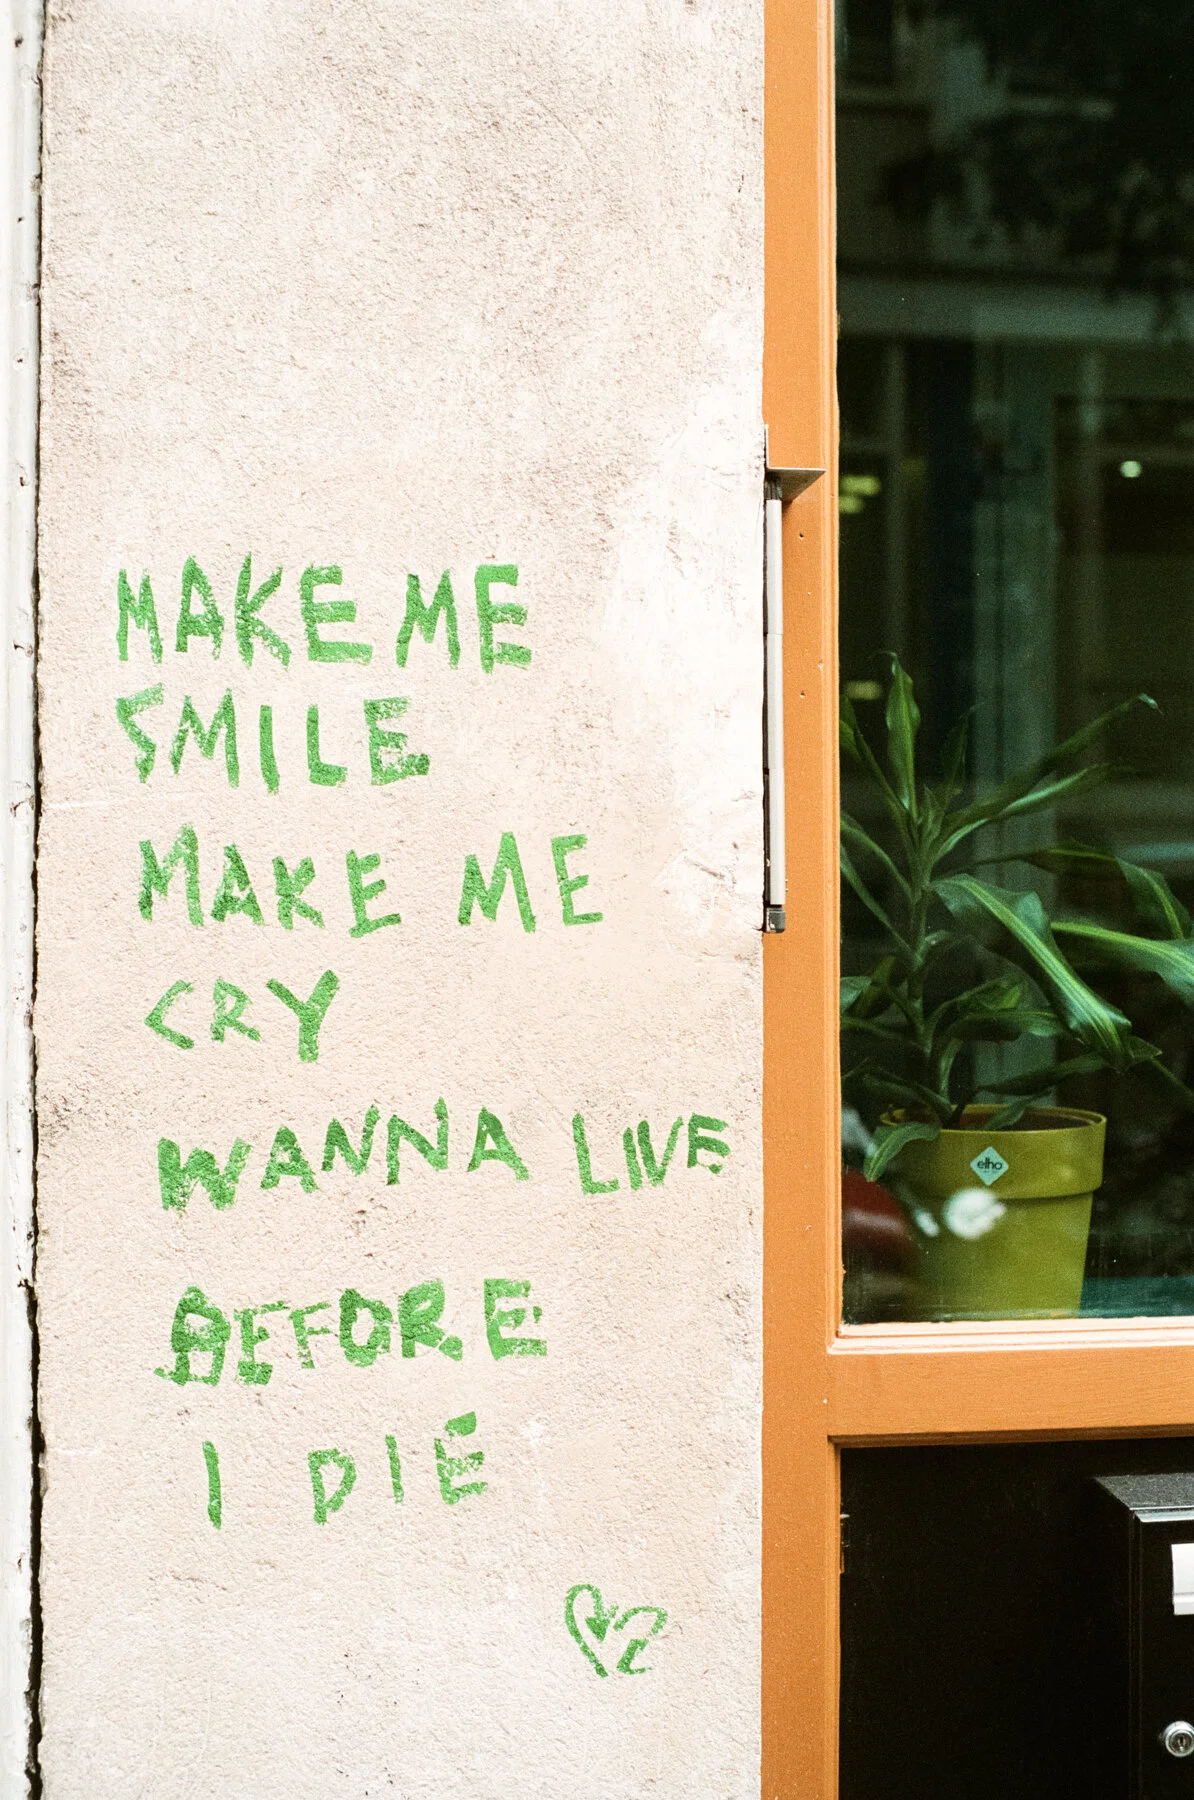 MAKE ME
SMILE
MAKE ME
CRY
WANNA LIVE
BEFORE
I DIE
elho